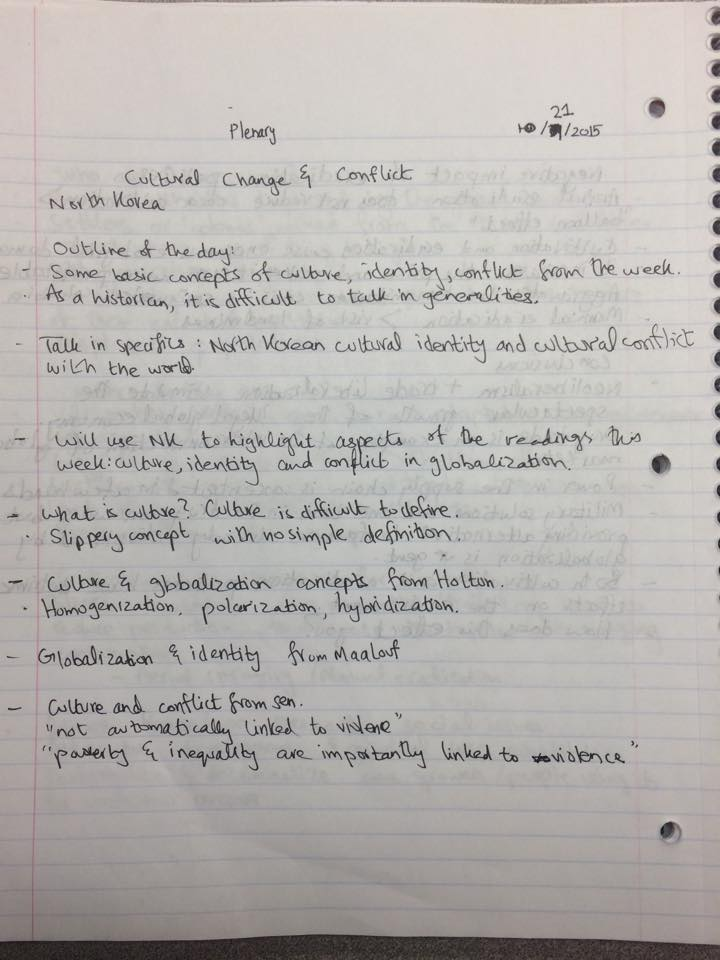 Plenary
21
10/ /2015
Cultural Change & Conflict
North Korea
Outline of the day:
- Some basic concepts of culture, identity, conflict from the week.
· As a historian, it is difficult to talk in generalities.
- Talk in specifics: North Korean cultural identity and cultural conflict
with the world.
- Will use NK to highlight aspects of the readings this
week: culture, identity and conflict in globalization.
- What is culture? Culture is difficult to define.
· Slippery concept with no simple definition.
- Culture & globalization concepts from Holton.
· Homogenization, polarization, hybridization.
- Globalization & identity from Maalouf
- Culture and conflict from sen.
"not automatically linked to violene"
"poverty & inequality are importantly linked to violence"